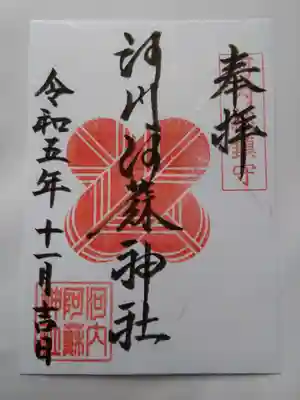 奉拝
鎮守
河内阿蘇神社
令和五年十一月吉日
河内
阿蘇
神社